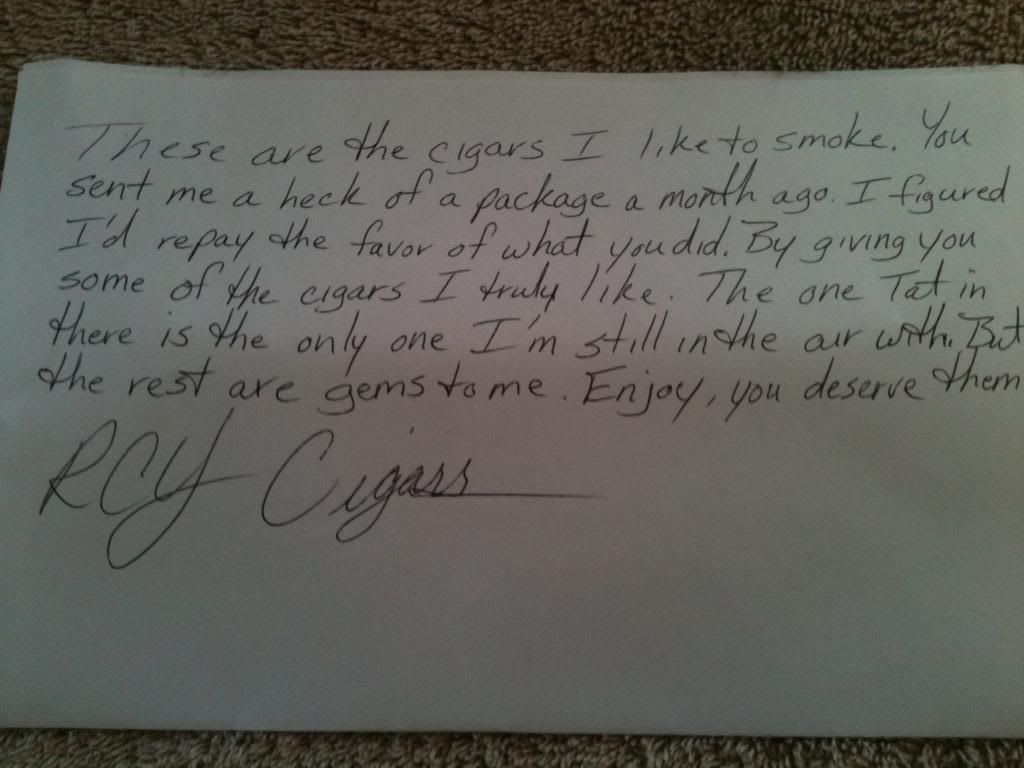 These are the cigars I like to smoke. You
sent me a heck of a package a month ago. I figured
I'd repay the favor of what you did. By giving you
some of the cigars I truly like. The one Tat in
there is the only one I'm still in the air with. But
the rest are gems to me. Enjoy, you deserve them
RCY Cigars